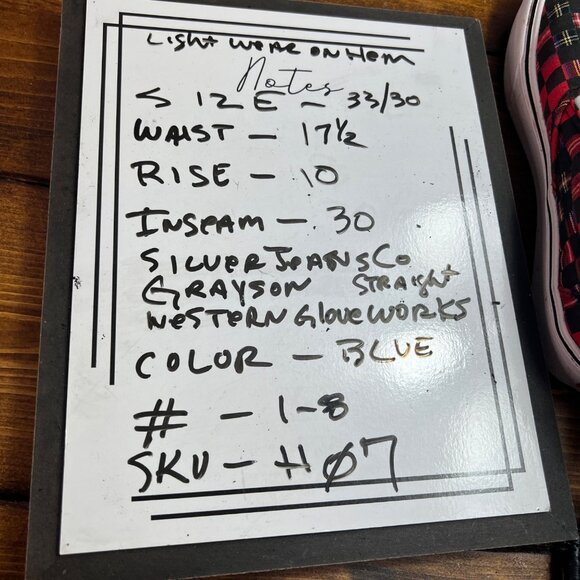 Light wear on Hem
Notes
SIZE - 33/30
WAIST - 17½
RISE - 10
INSEAM - 30
SILVER JEANS CO
GRAYSON STRAIGHT
WESTERN GLOVE WORKS
COLOR - BLUE
# - 1-8
SKU - HØ7